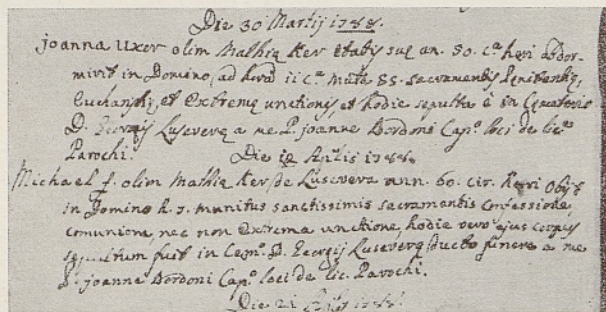 Die 30 Martij 1788.
Joanna Uxor olim Mathiæ Ker etatis suę an. 80. cª heri obdor-
mivit in Domino, ad horã 11 cª SS. sacramentis Penitentię,
Eucharistię, et Extremę unctionis, et hodie sepulta è in Cęmeterio
D. Georgij Luseverę a me P. Joanne Bordoni Capº loci de licª
Parochi.
Die Aplis 1788.
Michael f. olim Mathię Ker de Lusevera ann. 60. cir. heri obijt
in Domino h. munitus sanctissimis sacramentis confessione,
comunione, nec non extrema unctione, hodie vero ejus corpus
sepultum fuit in Cęm. D. Georgij Luseverę ducto funere a me
P. Joanne Bordoni Capº loci de lic. Parochi.
Die 21